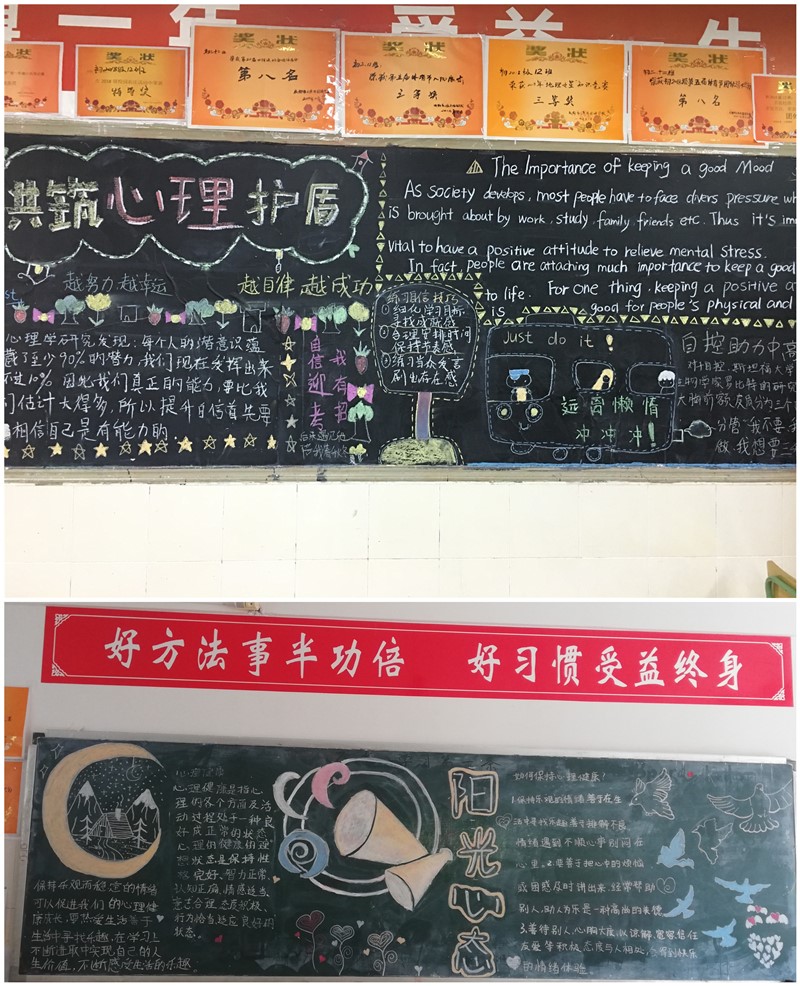 一年 受益
奖状
奖状
奖状
奖状
奖状
特等奖
第八名
三等奖
三等奖
第八名
共筑心理护盾
越努力越幸运
越自律 越成功
心理学研究发现:每个人的潜意识蕴
藏了至少90%的潜力,我们现在发挥出来
不过10%。因此我们真正的能力,要比我
们估计大得多,所以提升自信首先要
相信自己是有能力的.
自信迎考
我有招
练习自信技巧
①细化学习目标
寻找成就感
②合理安排时间
保持节奏感
③练习当众发言
刷出存在感
The Importance of keeping a good Mood
As society develops, most people have to face divers pressure wh
is brought about by work, study, family, friends etc. Thus it's im
Vital to have a positive attitude to relieve mental stress.
In fact, people are attaching much importance to keep a good
to life. For one thing, keeping a positive a
is good for people's physical and
Just do it!
远离懒惰
冲冲冲!
自控助力中高
好方法事半功倍 好习惯受益终身
心理健康
心理健康是指心
理的各个方面及活
动过程处于一种良
好或正常的状态
心理的健康的理
想状态是保持性
格完好、智力正常、
认知正确、情感适当、
意志合理、态度积极、
行为恰当、适应良好的
状态.
保持乐观而稳定的情绪
可以促进我们的心理健
康成长,要热爱生活善于
生活中寻找乐趣,在学习上
不断进取中实现自己的人
生价值,不断感受生活的乐趣.
阳光心态
如何保持心理健康?
1.保持乐观的情绪 善于在生
活中寻找乐趣善于排解不良
情绪遇到不顺心事别闷在
心里。要善于把心中的烦恼
或困惑及时讲出来,经常帮助
别人,助人为乐是一种高尚的美德
3.善待别人,心胸大度,以谅解、宽容、信任
友爱等积极态度与人相处,会得到快乐
的情绪体验.